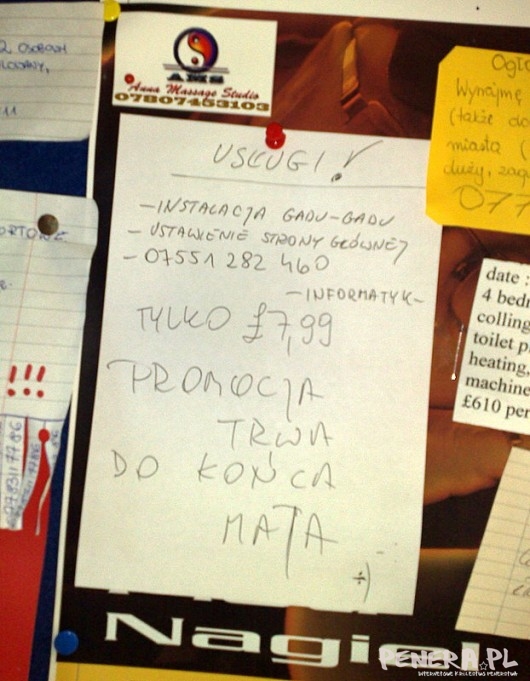 2 OSOBOM
AMS
Anna Massage Studio
07807453103
USŁUGI!
- INSTALACJA GADU-GADU
- USTAWIENIE STRONY GŁÓWNEJ
- 07551 282 460
- INFORMATYK -
TYLKO £7,99
PROMOCJA
TRWA
DO KOŃCA
MAJA
÷)
Nagi
Wynajmę
(także do
miasta (
duży, zaq
077
date :
4 bedr
colling
toilet p
heating,
machine
£610 per
!!!
PENERA.PL
INTERNETOWE KRÓLESTWO PENERSTWA